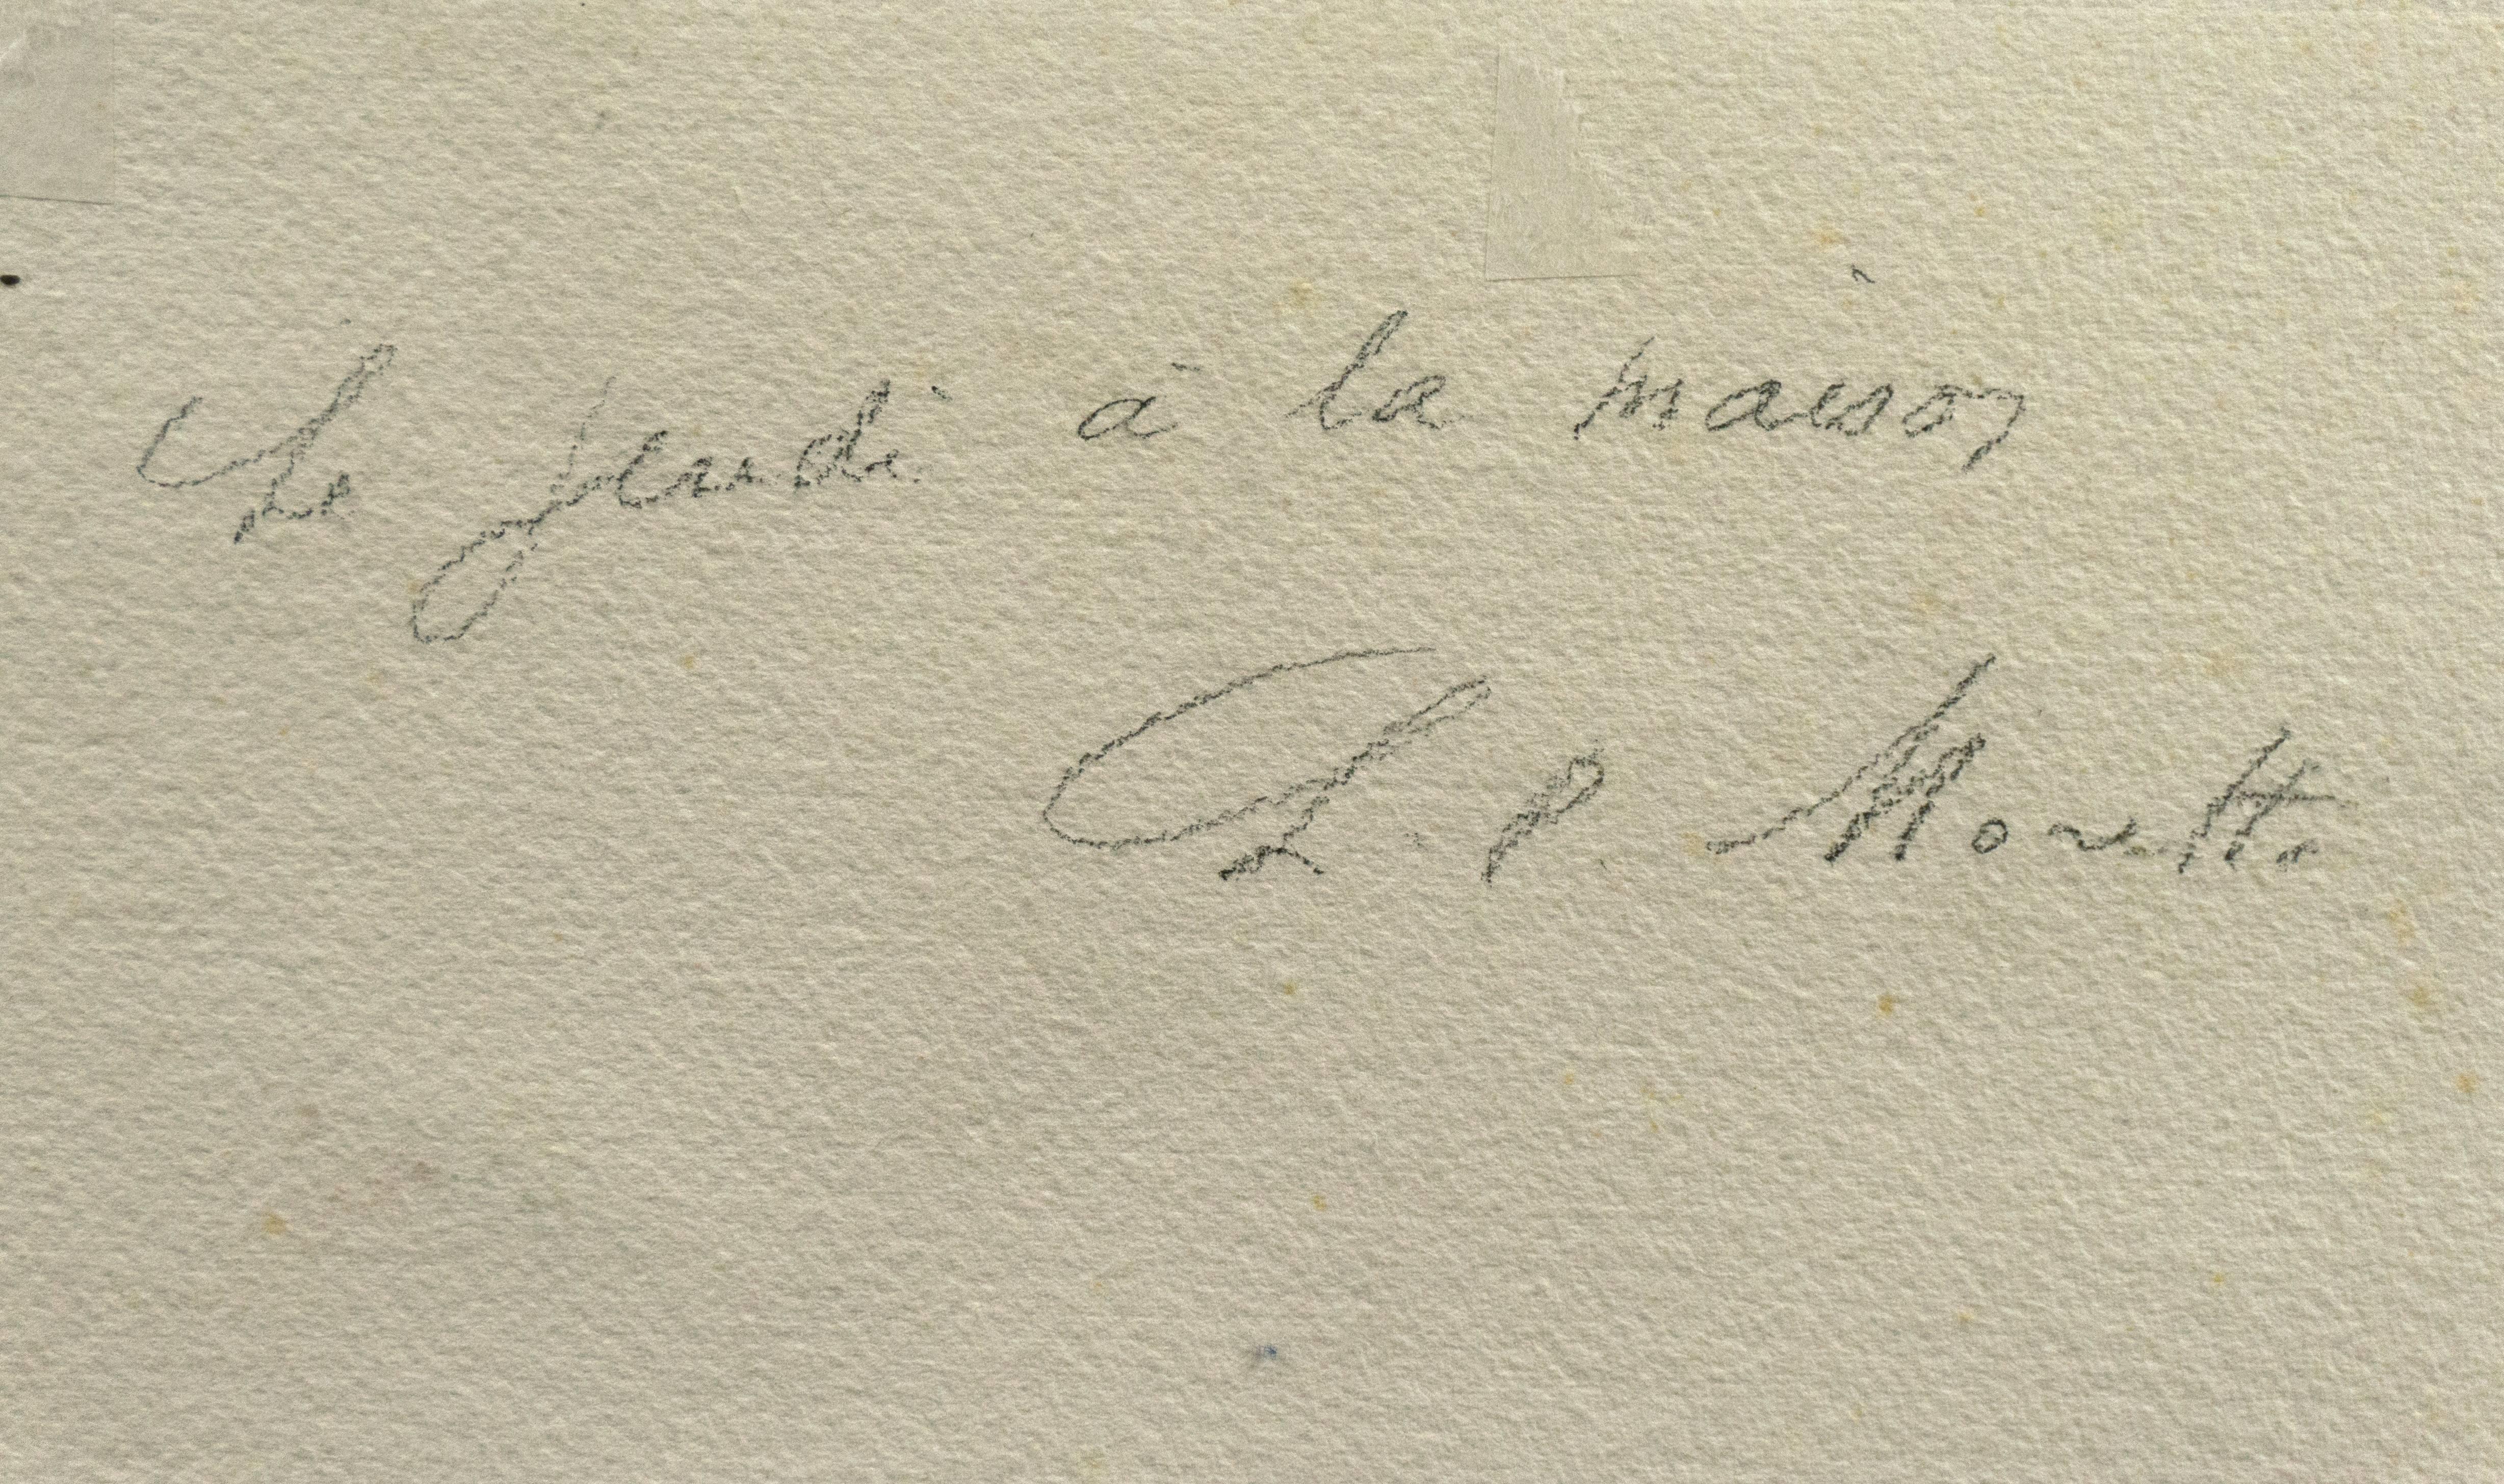 Le jeudi à la maison
L. P. Moretti